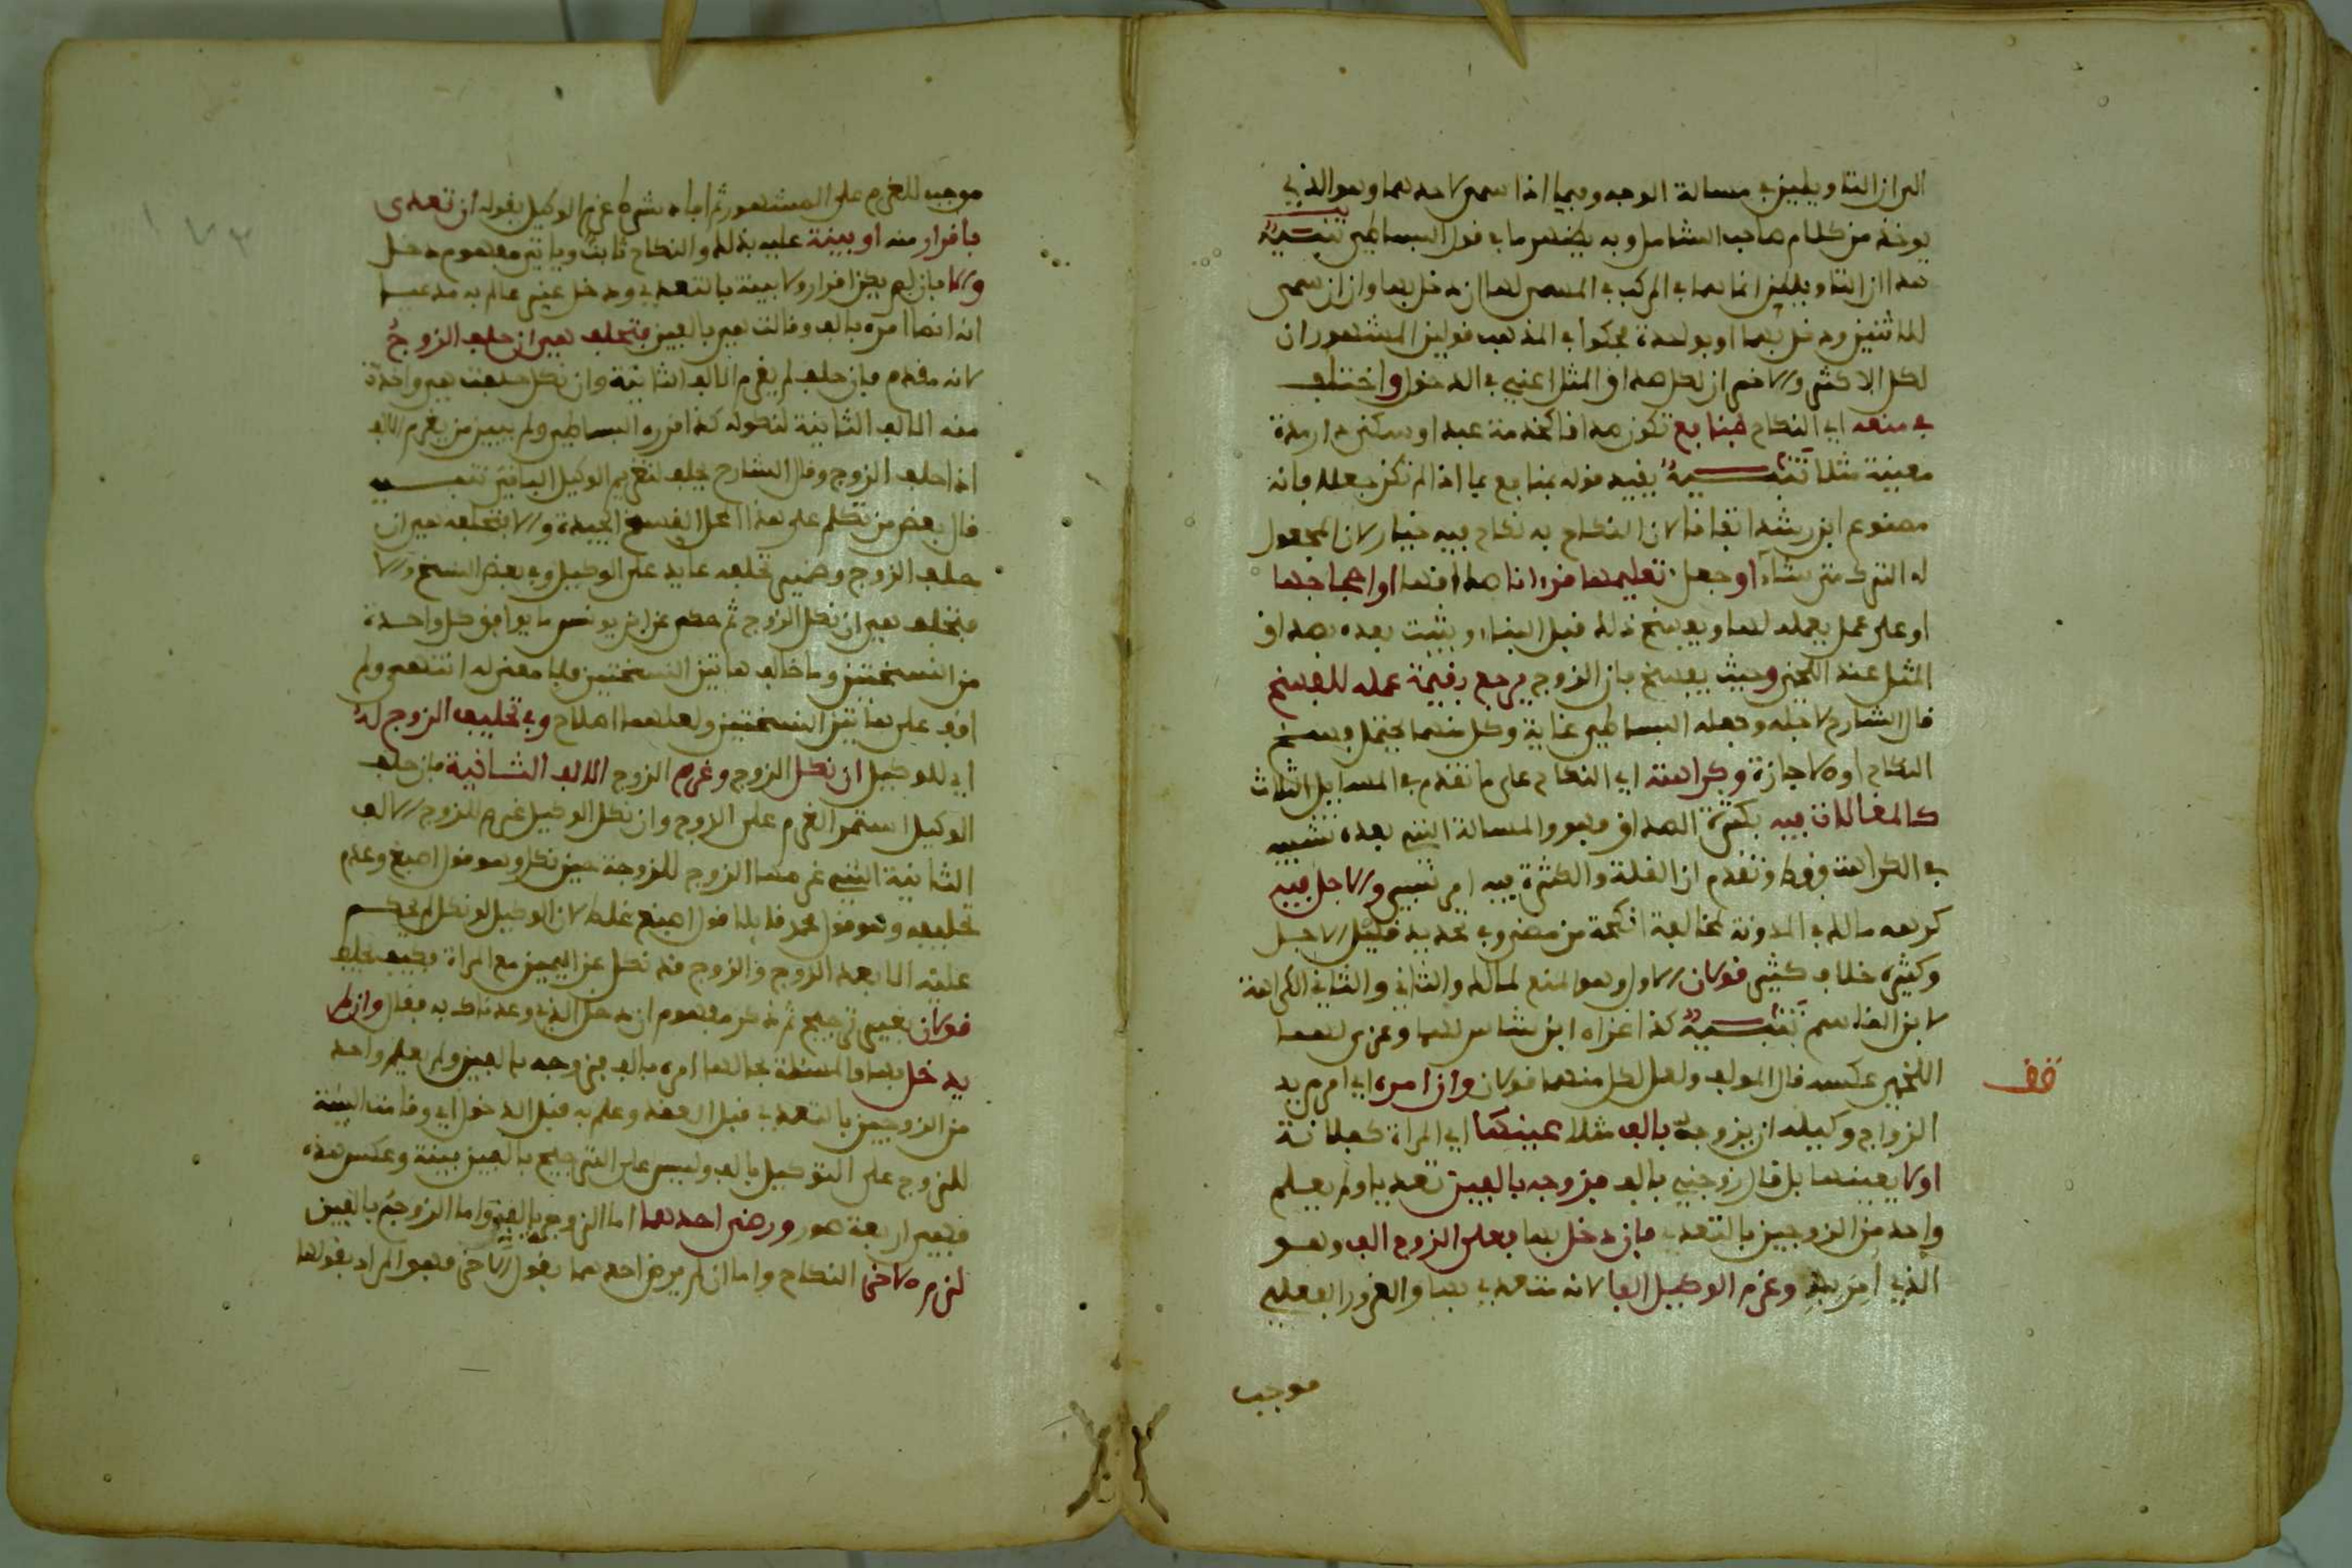 الى ان التاويلين في مسالة الوجه وفيما اذا سمى لاحدهما وهو الذي
يوخذ من كلام صاحب الشامل وبه يظهر ما في قول البساطي تنبيه
هذا ان التاويلين انما هما في المركب في المسمى لها ان دخل بها وان ان سمى
للاثنين ودخل بهما او بواحدة في المذهب قولين المشهور ان
لكل الاكثر والاخر ان لكل صداق المثل اعني في الدخول واختلف
في منعه اي النكاح بمنافع تكون صداقا كخدمة عبد او سكنى دار مدة
معينة مثلا تنبيه يفيد قوله بمنافع عما اذا لم تكن جعلا فانه
ممنوع ابن رشد اتفاقا لان النكاح به نكاح فيه خيار لان المجعول
له الترك متى شاء او جعل تعليمها قرانا صداقها او احجاجها
او على عمل يعمله لها ويفسخ ذلك قبل البناء ويثبت بعده بصداق
المثل عند اللخمي وحيث يفسخ فان الزوج يرجع بقيمة عمله للفسخ
قال الشارح لاجله وجعله البساطي غاية وكل منهما يحتمل وبفسخ
النكاح او لاجازة وكراهته اي النكاح على ما تقدم في المسايل الثلاث
كالمغالات فيه بكثرة الصداق وهو والمسالة التي بعده تشبيه
في الكراهة فقط وتقدم ان القلة والكثرة فيه امر نسبي والاجل فيه
كرهه مالك في المدونة لمخالفة انكحة من مضى وفي تحديد قليل الاجل
وكثيره خلاف كثير قولان الاول وهو المنع لمالك والثاني والثاني الكراهة
لابن القاسم تنبيه كذا عزاه ابن شاس لهما وعزى لهما
اللخمي عكسه قال المولف ولعل لكل منهما قولان وان امره اي امر مريد
الزواج وكيله ان يزوجه بالف مثلا عينها اي المراة كفلانة
او لا يعينها بل قال زوجني بالف فزوجه بالفين تعديا ولم يعلم
واحد من الزوجين بالتعدي فان دخل بها فعلى الزوج الف وهو
الذي امر به وغرم الوكيل الفا لانه متعدي بها والغرور الفعلي
موجب
قف
موجب للغرم على المشهور ثم افاد شرط غرم الوكيل بقوله ان تعدى
باقرار منه او بينة عليه بذلك والنكاح ثابت وياتي مفهوم دخل
والا فان لم يكن اقرار ولا بينة بالتعدي ودخل غير عالم به مدعيا
انه انما امره بالف وقالت هي بالفين فتحلف هي ان حلف الزوج
لانه مقدم فان حلف لم يغرم الالف الثانية وان نكل حلفت هي واخذت
منه الالف الثانية لنكوله كذا قرره البساطي ولم يبين من يغرم الالف
اذا حلف الزوج وقال الشارح يحلف لتغريم الوكيل الباقي تنبيه
قال بعض من تكلم على هذا المحل النسخ الجيدة والا فتحلفه هي ان
حلف الزوج وضمير تحلفه عايد على الوكيل وفي بعض النسخ والا
فتحلف هي ان نكل الزوج ثم حكى عن ابن يونس ما يوافق كل واحدة
من النسختين وما خالف هاتين النسختين فلا معنى له انتهى ولم
اقف على هاتين النسختين ولعلهما اصلاح وفي تحليف الزوج له
اي للوكيل ان نكل الزوج وغرم الزوج الالف الثانية فان حلف
الوكيل استمر الغرم على الزوج وان نكل الوكيل غرم للزوج الالف
الثانية التي غرمها الزوج للزوجة حين نكل وهو قول اصبغ وعدم
تحليفه وهو قول محمد قايلا قول اصبغ غلط لان الوكيل لو نكل لم يحكم
عليه الا بعد الزوج والزوج قد نكل عن اليمين مع المراة فكيف يحلف
قولان بغير ترجيح ثم ذكر مفهوم ان دخل الذي وعدناك به فقال وان لم
يدخل بها والمسئلة بحالها امره بالف فزوجه بالفين ولم يعلم واحد
من الزوجين بالتعدي قبل العقد وعلم به قبل الدخول اي وقامت البينة
للزوج على التوكيل بالف وليس على التزويج بالفين بينة وعكس هذه
فهي اربعة صور ورضي احدهما اما الزوج بالفين واما الزوجة بالفين
لزم الاخر النكاح واما ان لم يرض احدهما بقول الاخر فهو المراد بقولها